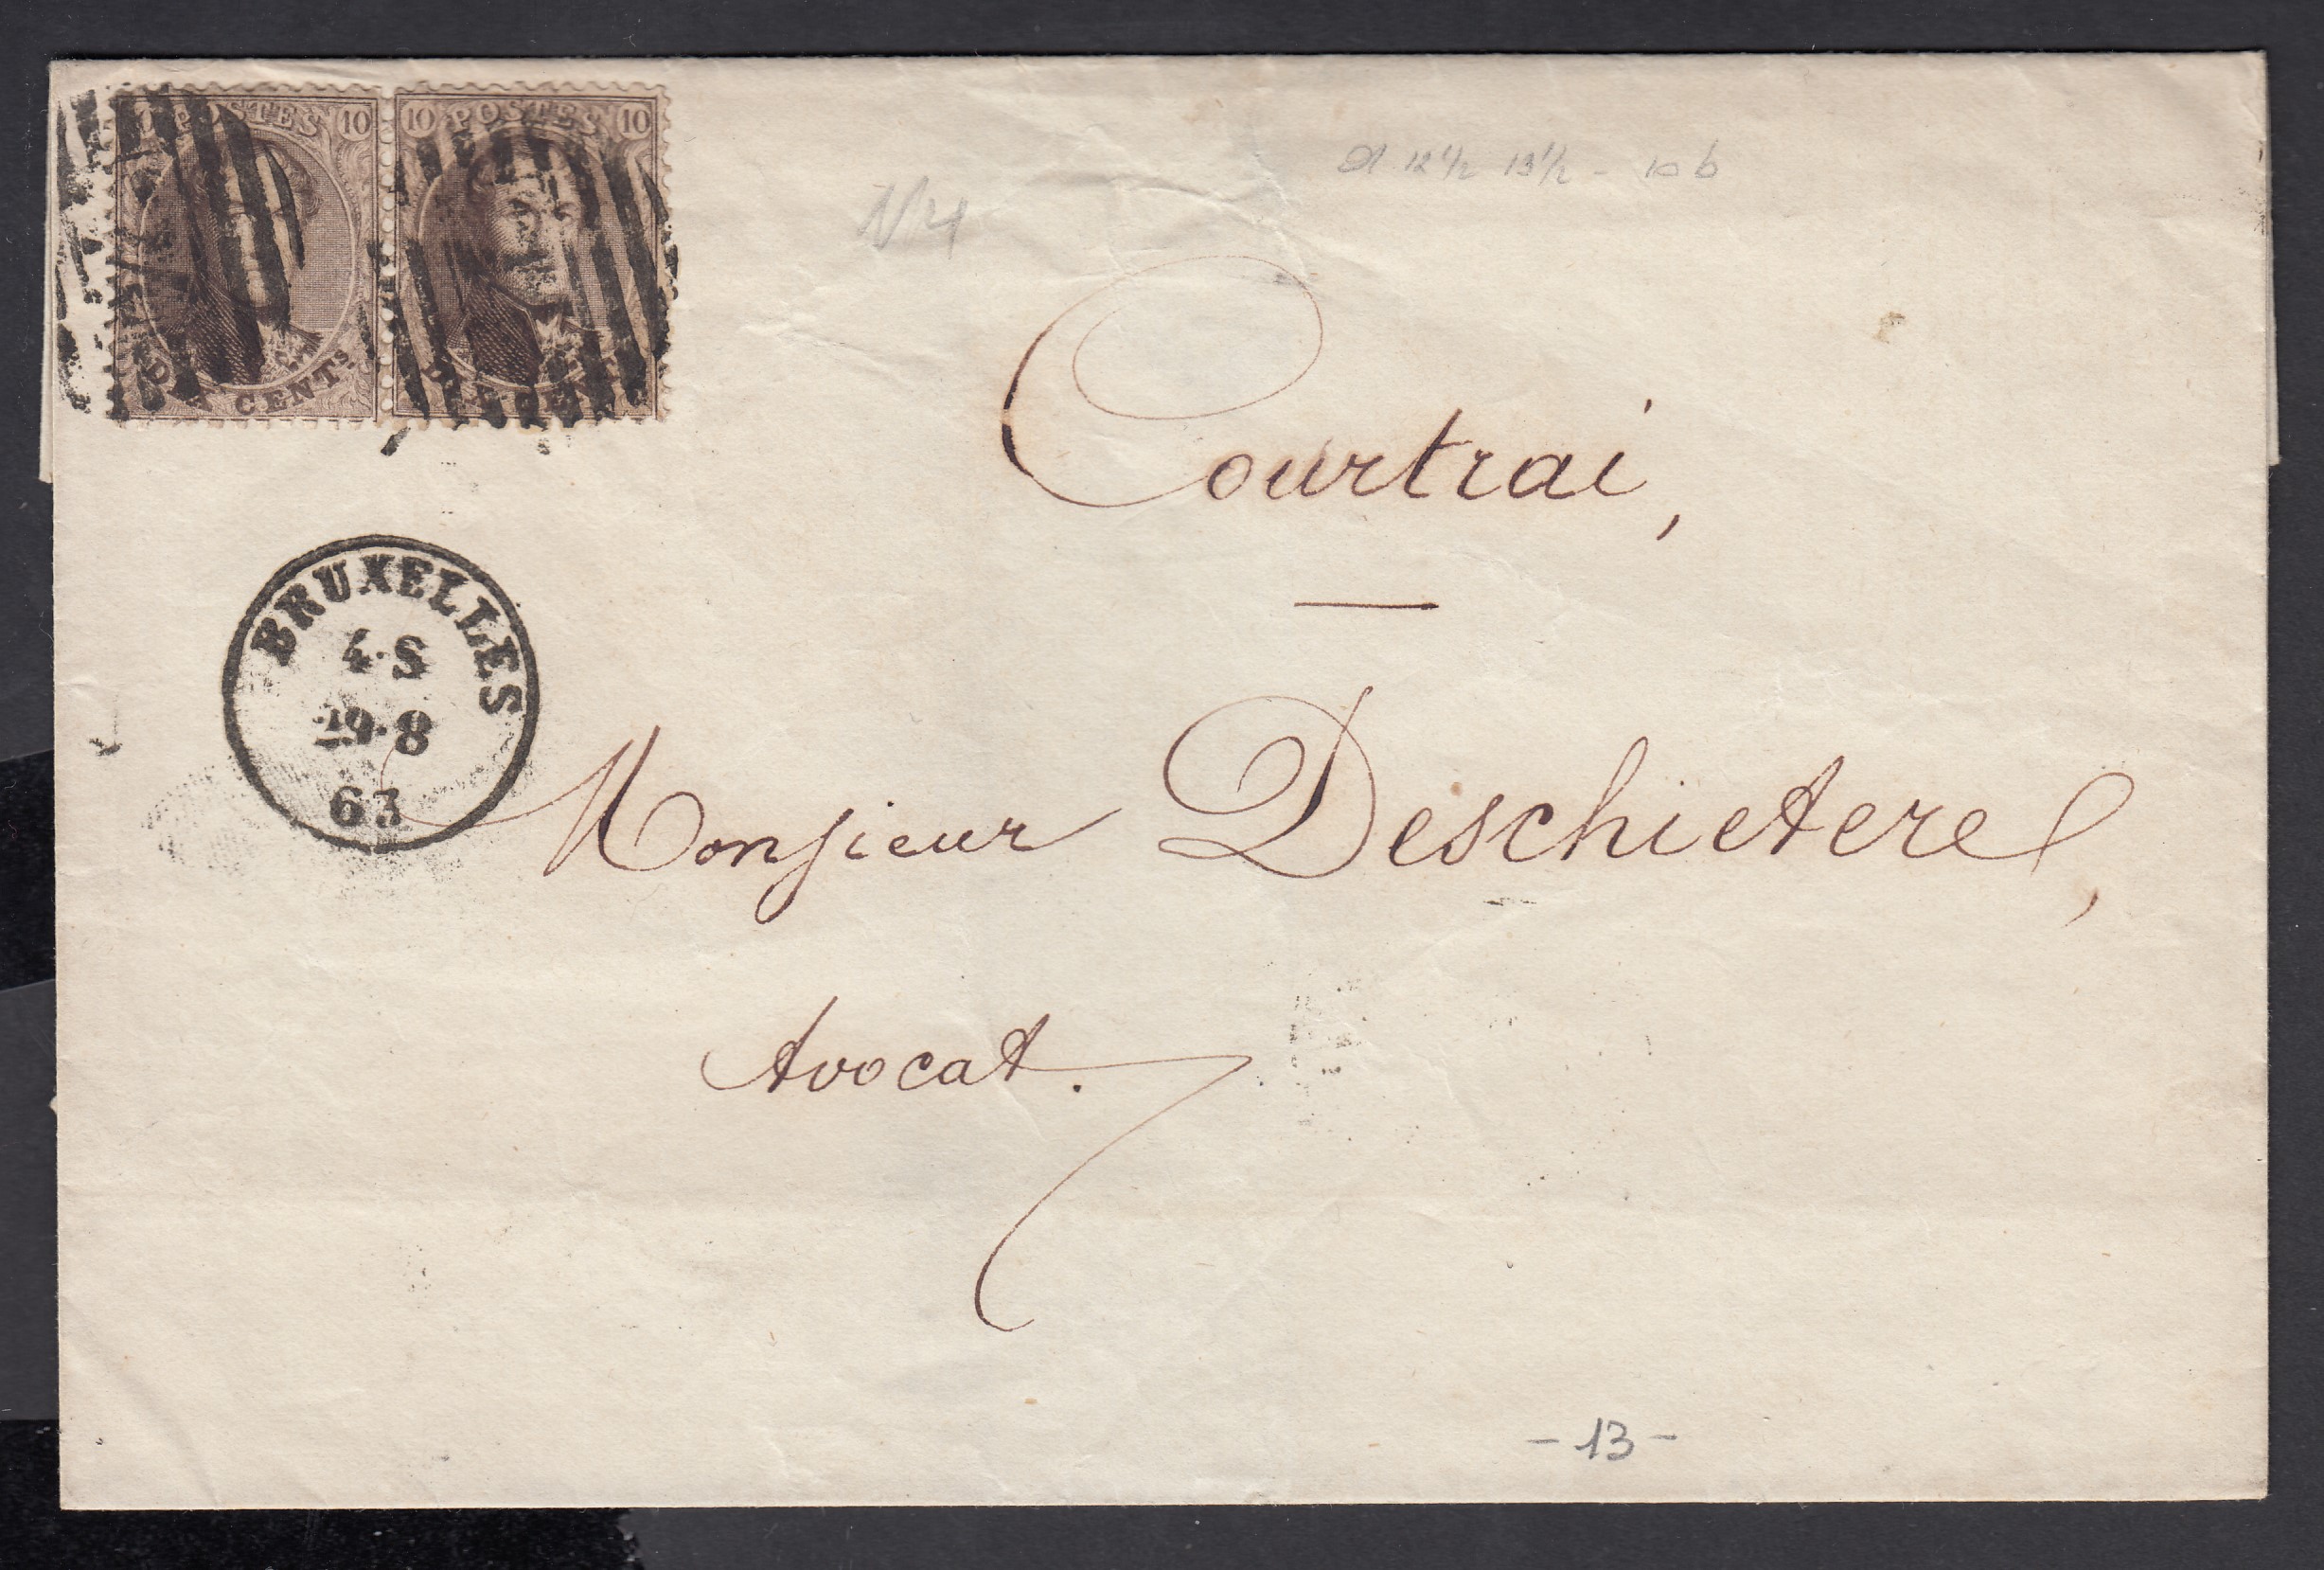 POSTES 10
10 POSTES 10
CENTS
N 4
12 1/2 13 1/2 - 10 b
Courtrai,
BRUXELLES
4·S
29·8
63
Monsieur Deschietere,
Avocat.
- 13 -